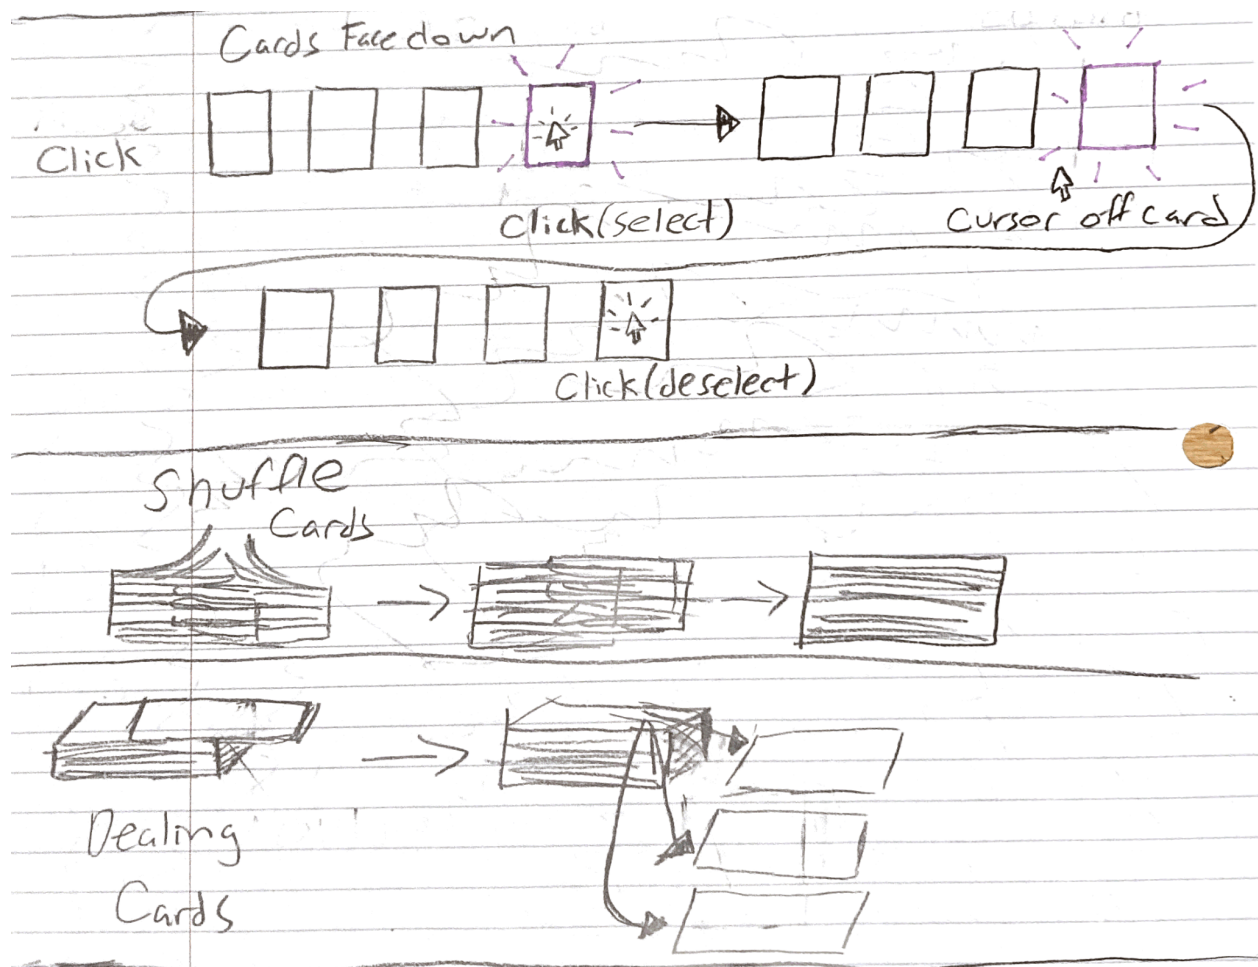 Cards Face down
Click
Click (select)
Cursor off card
Click (deselect)
Shuffle
Cards
Dealing
Cards